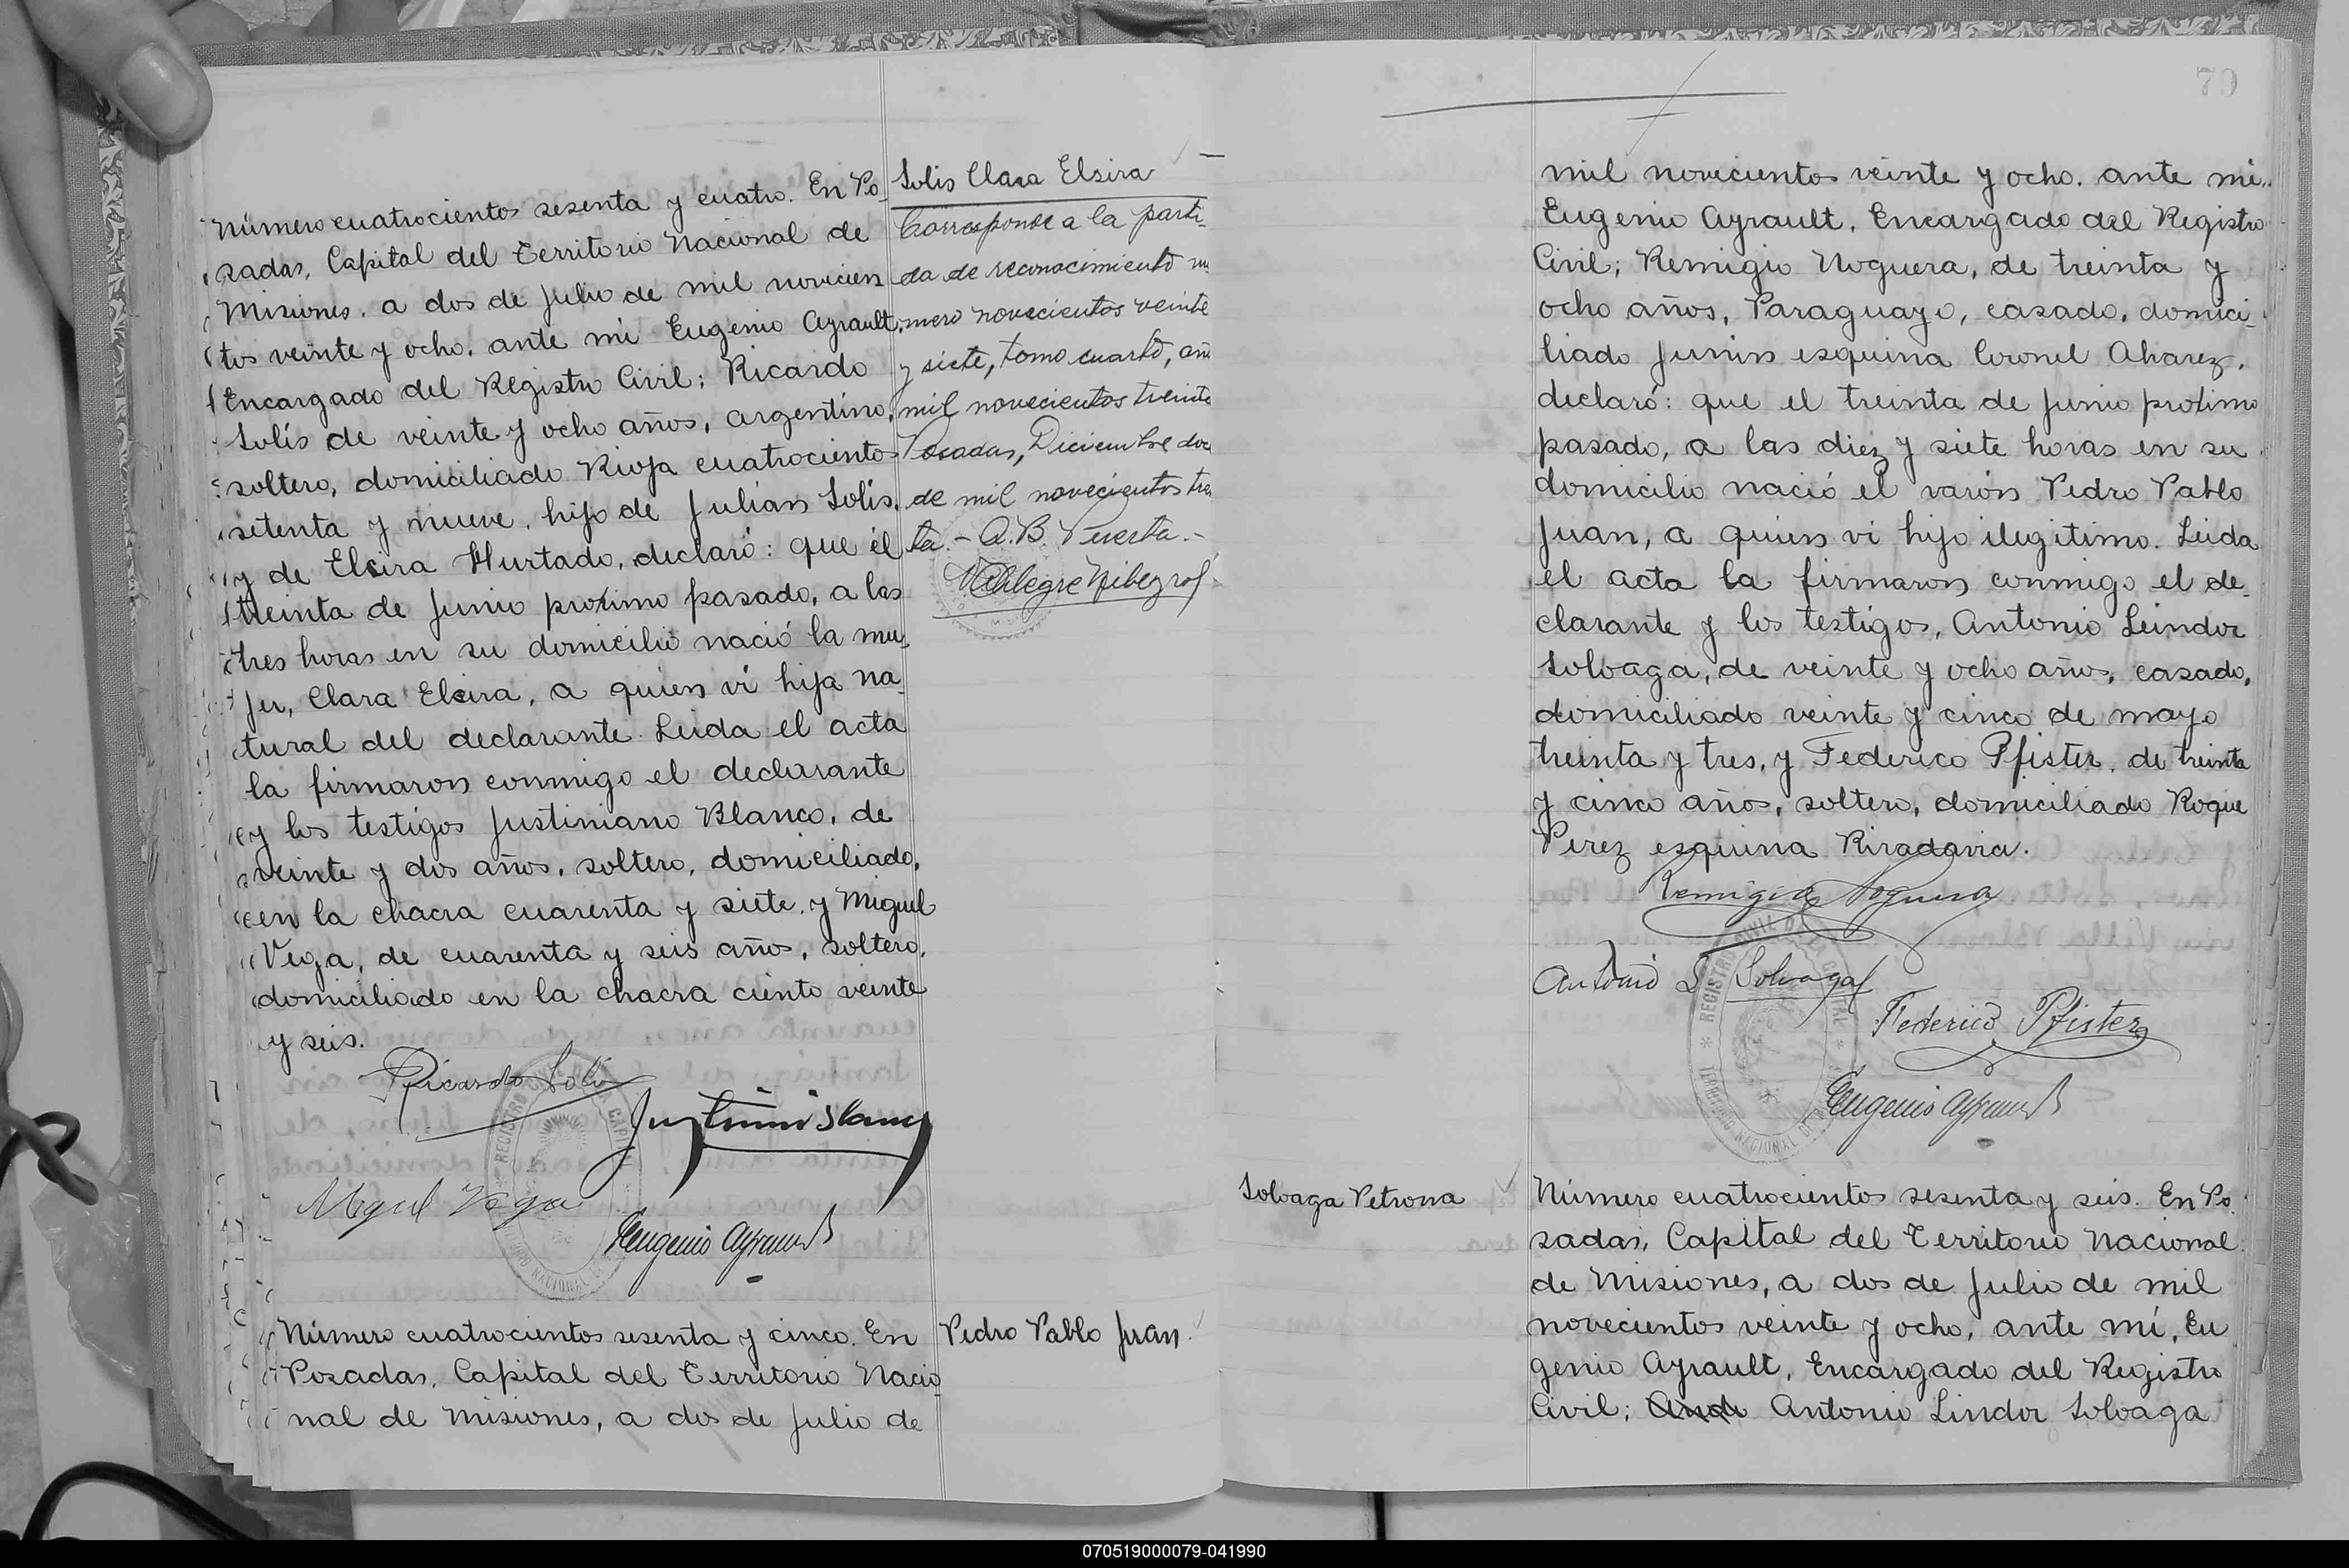 Número cuatrocientos sesenta y cuatro. En Po-
sadas, Capital del Territorio Nacional de
Misiones, a dos de Julio de mil novicien
tos veinte y ocho, ante mi Eugenio Ayrault,
Encargado del Registro Civil; Ricardo
Solís de veinte y ocho años, argentino,
soltero, domiciliado Rioja cuatrocientos
setenta y nueve, hijo de Julian Solis,
y de Elsira Hurtado, declaró: que el
treinta de Junio proximo pasado, a las
tres horas en su domicilio nació la mu-
jer, Clara Elsira, a quien vi hija na-
tural del declarante. Leida el acta
la firmaron conmigo el declarante
y los testigos Justiniano Blanco, de
veinte y dos años, soltero, domiciliado,
en la chacra cuarenta y siete, y Miguel
Vega, de cuarenta y seis años, soltero,
domiciliado en la chacra ciento veinte
y seis.
Ricardo Solis
Miguel Vega
Eugenio Ayrault
Solis Clara Elsira
Corresponde a la parti-
da de reconocimiento nu
mero novecientos veinte
y siete, tomo cuarto, añ
mil novecientos treinta
Posadas, Diciembre doc
de mil novecientos tre
ta.- A.B. Puerta.-
Número cuatrocientos sesenta y cinco. En
Posadas, Capital del Territorio Nacio
nal de Misiones, a dos de Julio de
Pedro Pablo Juan.
70
mil novecientos veinte y ocho, ante mi,
Eugenio Ayrault, Encargado del Registro
Civil; Remigio Noguera, de treinta y
ocho años, Paraguayo, casado, domici-
liado Junin esquina Coronel Alvarez,
declaró: que el treinta de Junio proximo
pasado, a las diez y siete horas en su
domicilio nació el varón Pedro Pablo
Juan, a quien vi hijo ilegitimo. Leida
el acta la firmaron conmigo el de-
clarante y los testigos, Antonio Leindor
Soloaga, de veinte y ocho años, casado,
domiciliado veinte y cinco de mayo
treinta y tres, y Federico Pfister, de treinta
y cinco años, soltero, domiciliado Roque
Perez esquina Rivadavia.
Remigio Noguera
Antonio L Soloaga
Federico Pfister
Eugenio Ayrault
Soloaga Petrona
Número cuatrocientos sesenta y seis. En Po
sadas, Capital del Territorio Nacional
de Misiones, a dos de Julio de mil
novecientos veinte y ocho, ante mí, Eu
genio Ayrault, Encargado del Registro
Civil; Antonio Lindor Soloaga
070519000079-041990